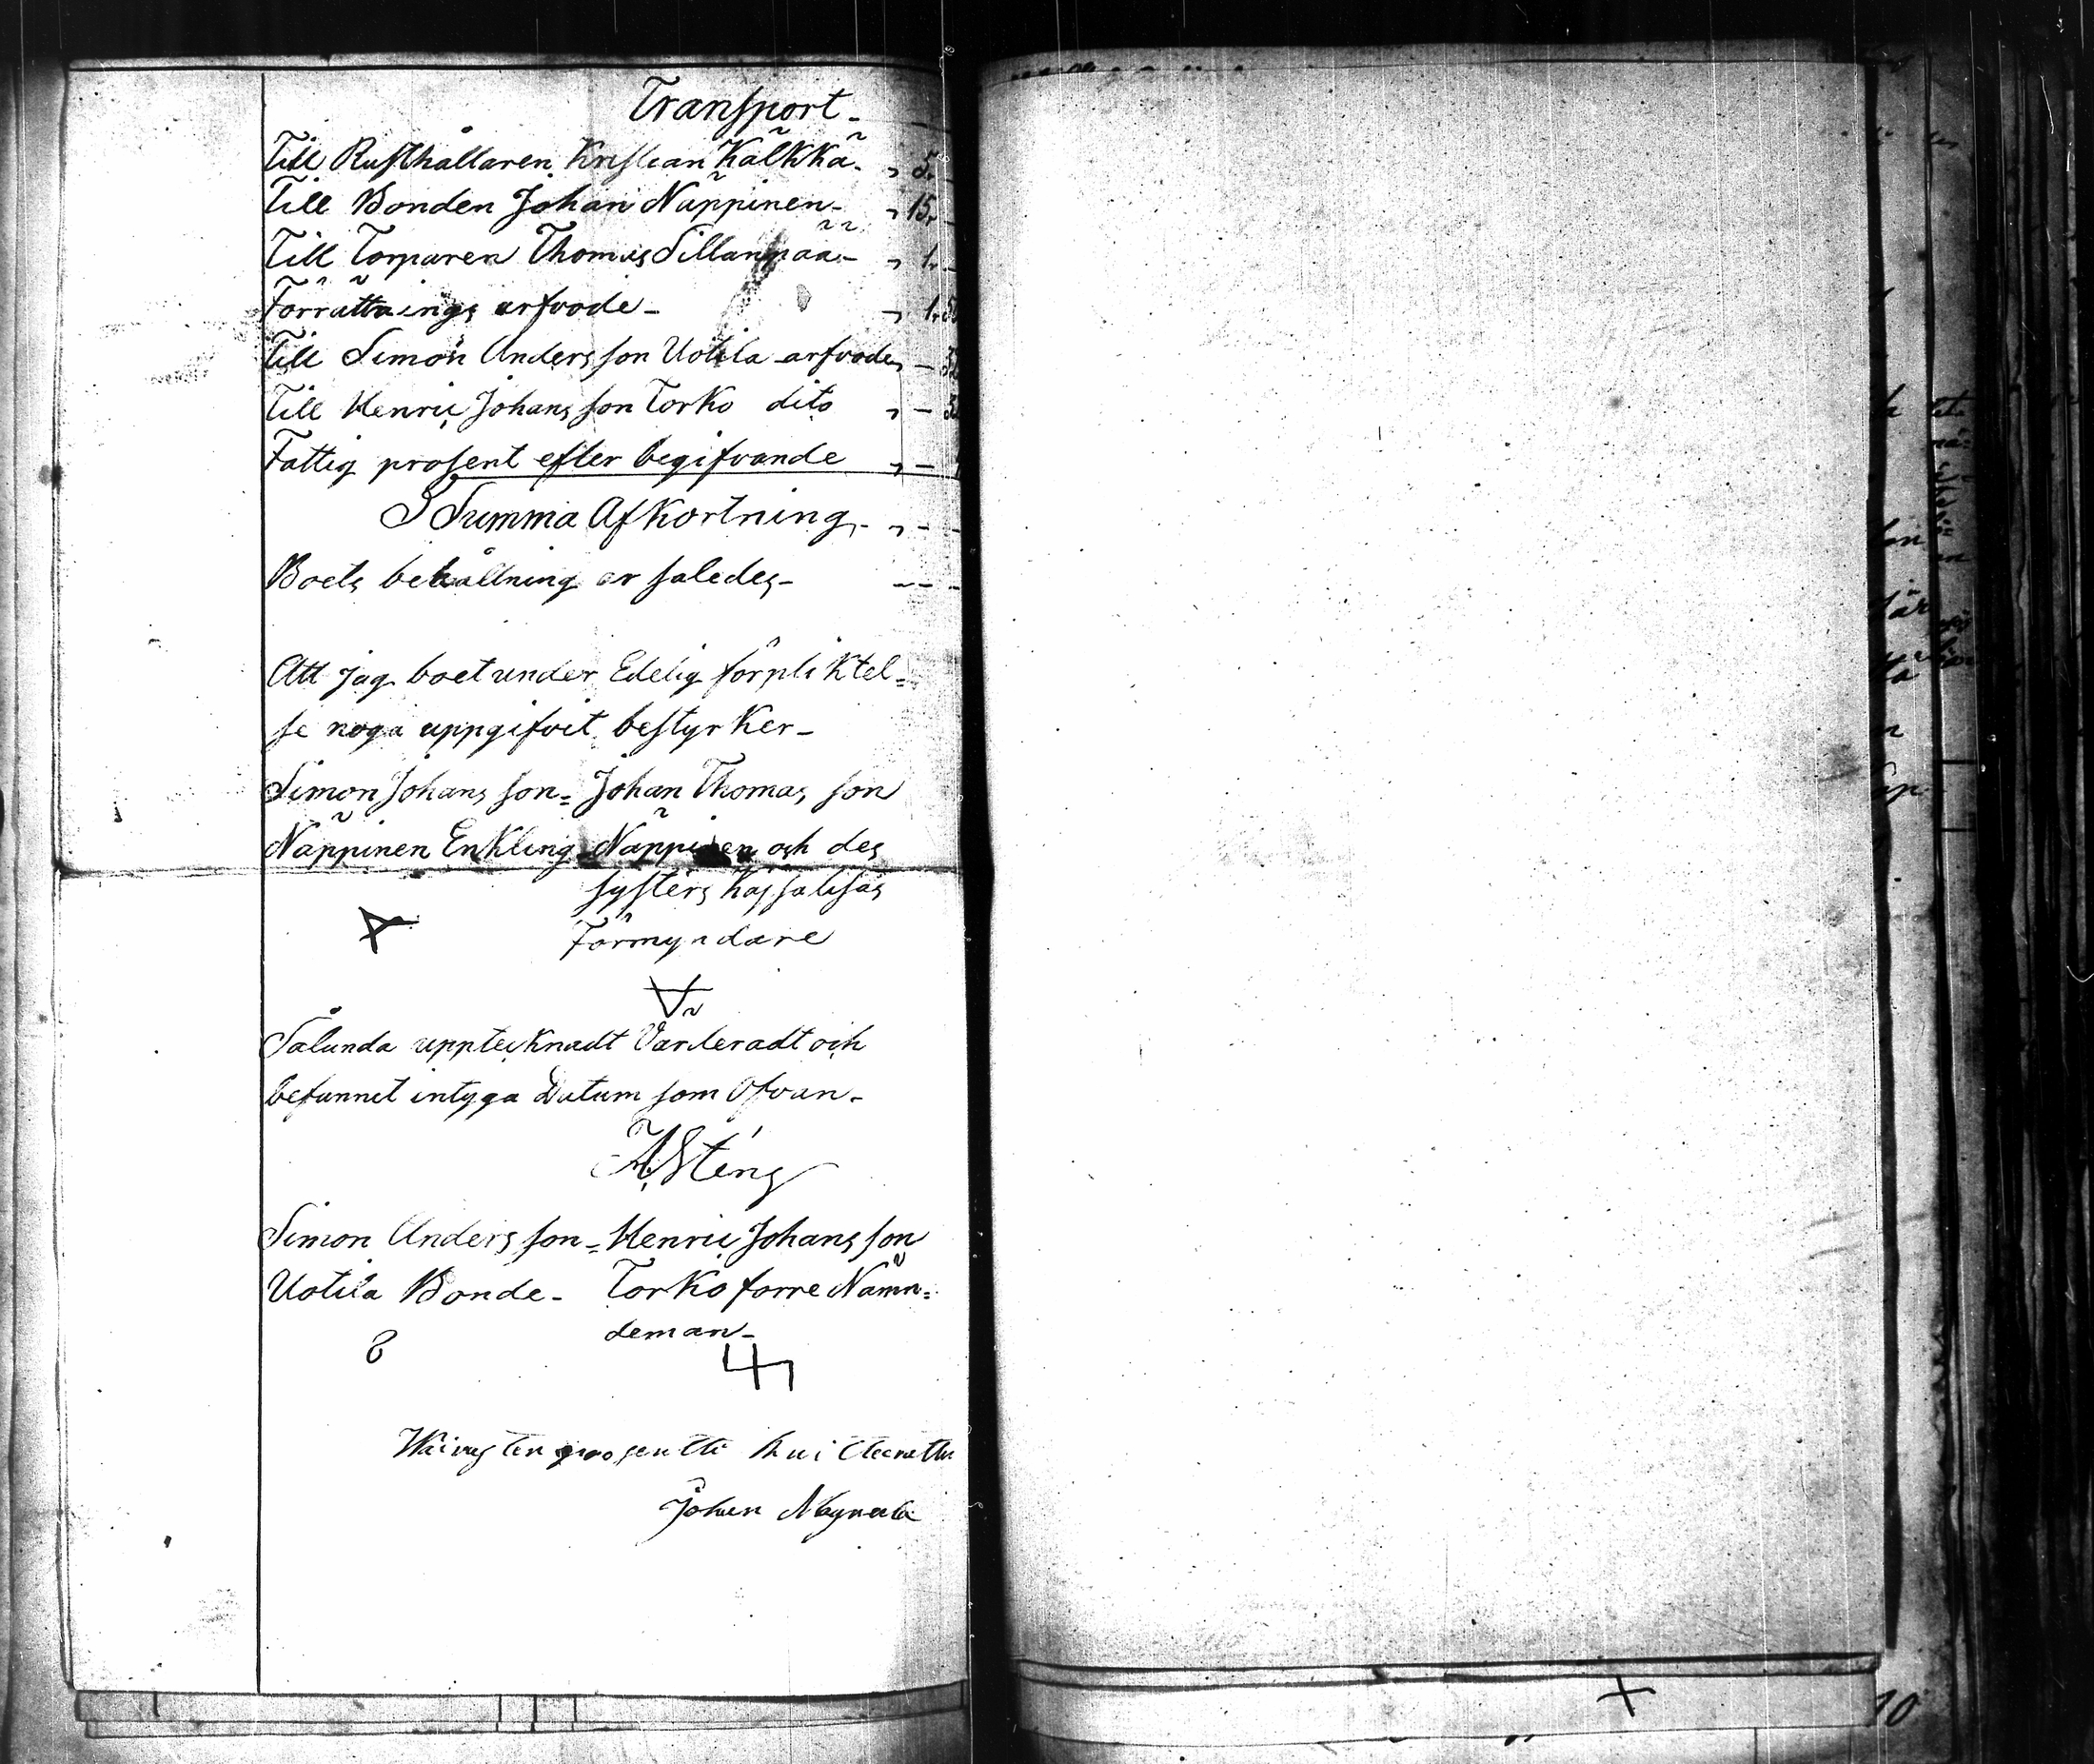 Transport
Till Rusthållaren Kristian Kälkkä " 5.
Till Bonden Johan Näppinen " 15.
Till Torparen Thomas Sillanpää " 1.
Förrättnings arfvode " 1.5
Till Simon Andersson Uotila arfvode " — 3
Till Henric Johansson Torko dito " — 3
Fattig prosent efter begifvande " —
Summa Afkortning " — —
Boets behållning är således — —
Att jag boet under Edelig förpliktel=
se noga uppgifvit, bestyrker
Simon Johansson = Johan Thomasson
Näppinen Enkling Näppinen och des
systers
Förmyndare
Sålunda upptecknadt Värderadt och
befunnet intyga Datum som Ofvan
Simon Andersson = Henric Johansson
Uotila Bonde Torko förre Nämn=
deman
prosentti
Johan
10